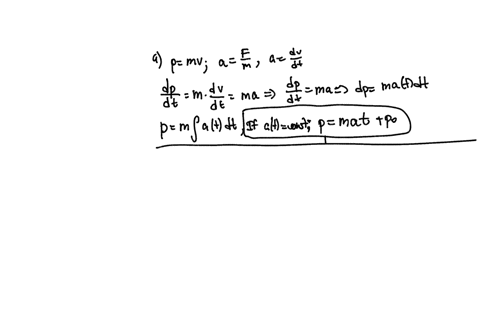 a) p=mv; a=F/m, a=dv/dt
dp/dt=m·dv/dt=ma => dp/dt=ma=> dp=ma(t)dt
p=m∫a(t)dt, If a(t)=const; p=mat+p₀